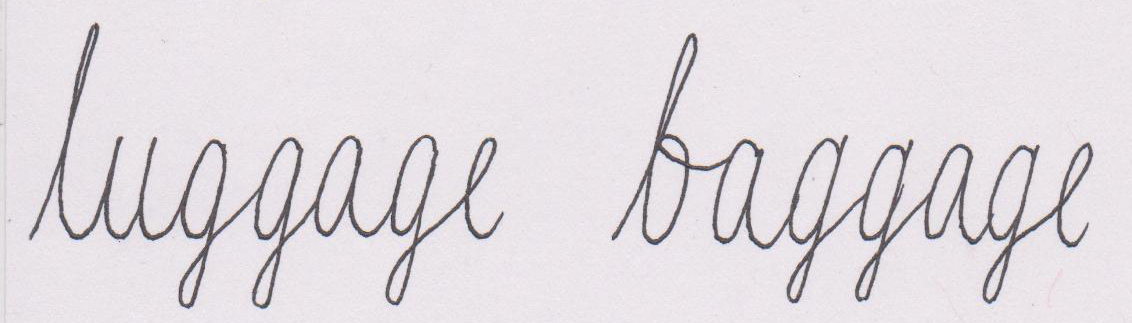 luggage baggage